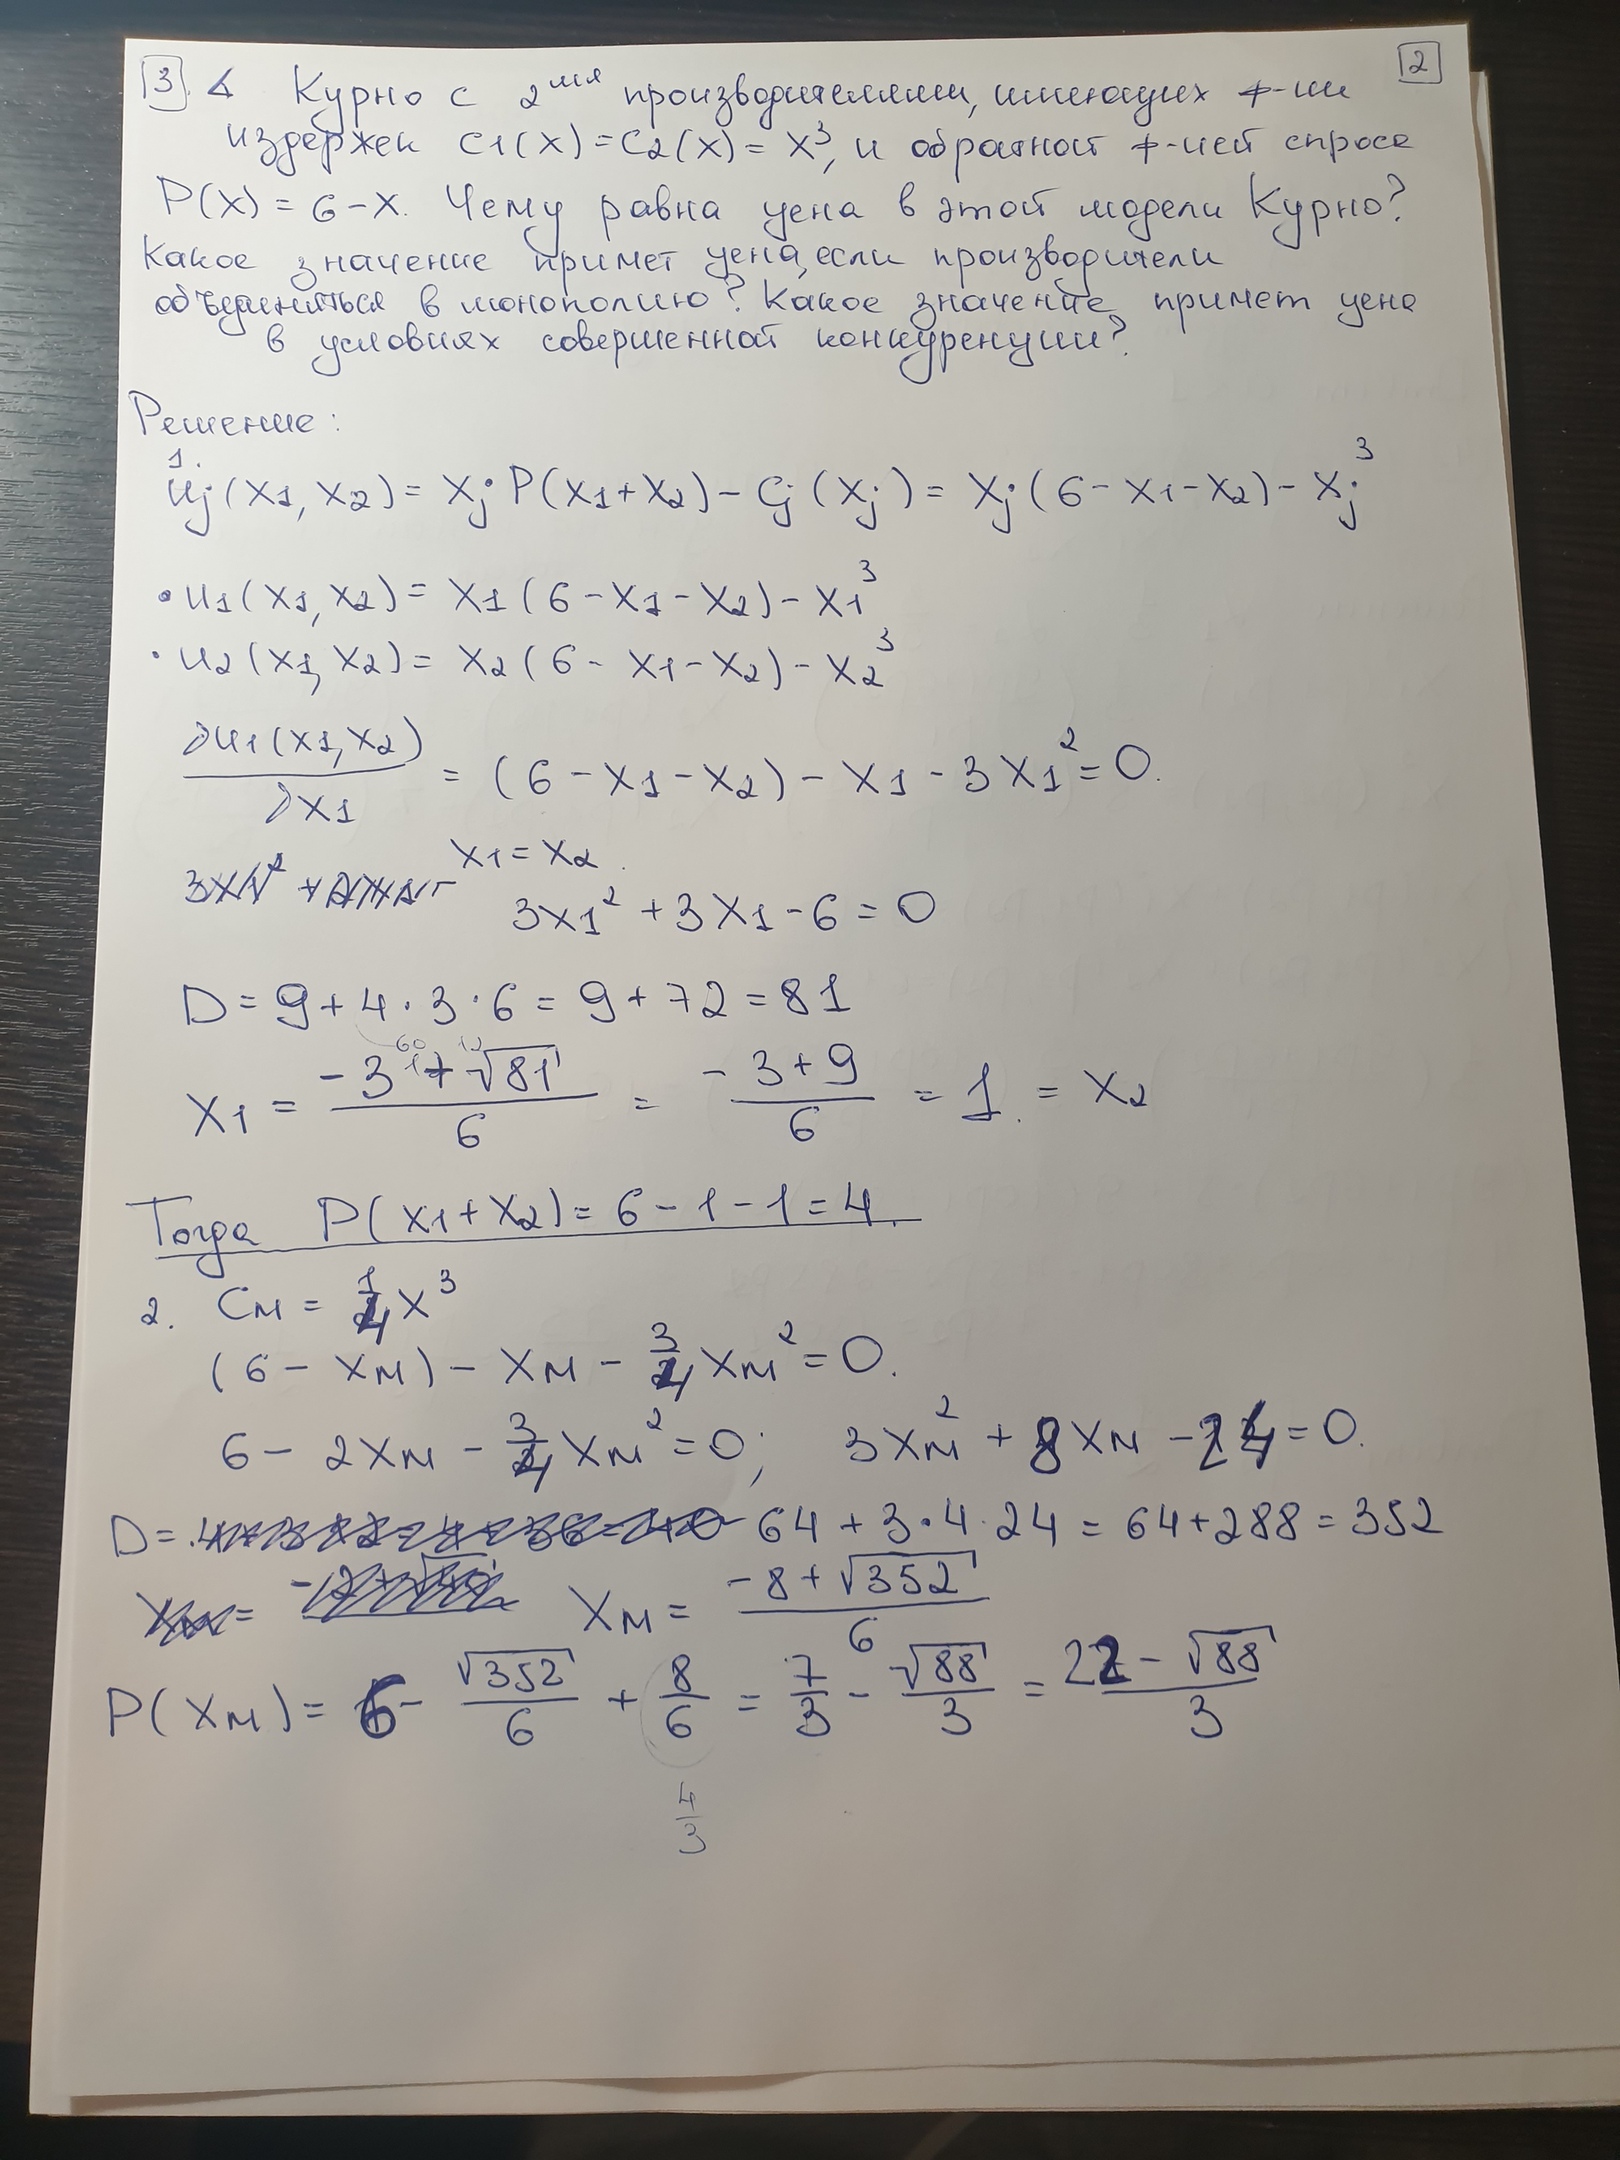 2
3. 4 Курно с 2мя производителями, имеющих ф-ии
издержек C1(X) = C2(X) = X³, и обратной ф-ией спроса
P(X) = 6 - X. Чему равна цена в этой модели Курно?
Какое значение примет цена, если производители
объединиться в монополию? Какое значение примет цена
в условиях совершенной конкуренции?
Решение:
1.
uj(X1, X2) = Xj P(X1+X2) - Cj(Xj) = Xj(6 - X1 - X2) - Xj³
• u1(X1, X2) = X1(6 - X1 - X2) - X1³
• u2(X1, X2) = X2(6 - X1 - X2) - X2³
∂u1(X1, X2)/∂X1 = (6 - X1 - X2) - X1 - 3X1² = 0.
X1 = X2.
3X1² + 3X1 - 6 = 0
D = 9 + 4·3·6 = 9 + 72 = 81
X1 = (-3 + √81)/6 = (-3+9)/6 = 1. = X2
Тогда P(X1+X2) = 6 - 1 - 1 = 4.
2. Cм = 1/4 X³
(6 - Xм) - Xм - 3/4 Xм² = 0.
6 - 2Xм - 3/4 Xм² = 0; 3Xм² + 8Xм - 24 = 0.
D = 64 + 3·4·24 = 64 + 288 = 352
Xм = (-8 + √352)/6
P(Xм) = 6 - √352/6 + 8/6 = 7/3 - √88/3 = (22 - √88)/3
4/3